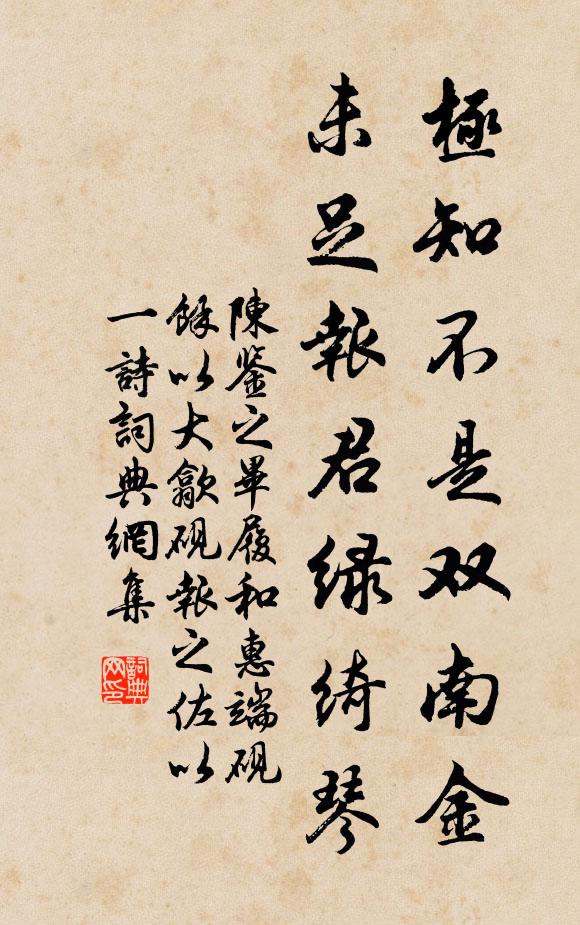 極知不是双南金
未足報君緑綺琴
陳鑒之畢履和惠端硯
餘以大歙硯報之佐以
一詩詞典網集
詞典网印